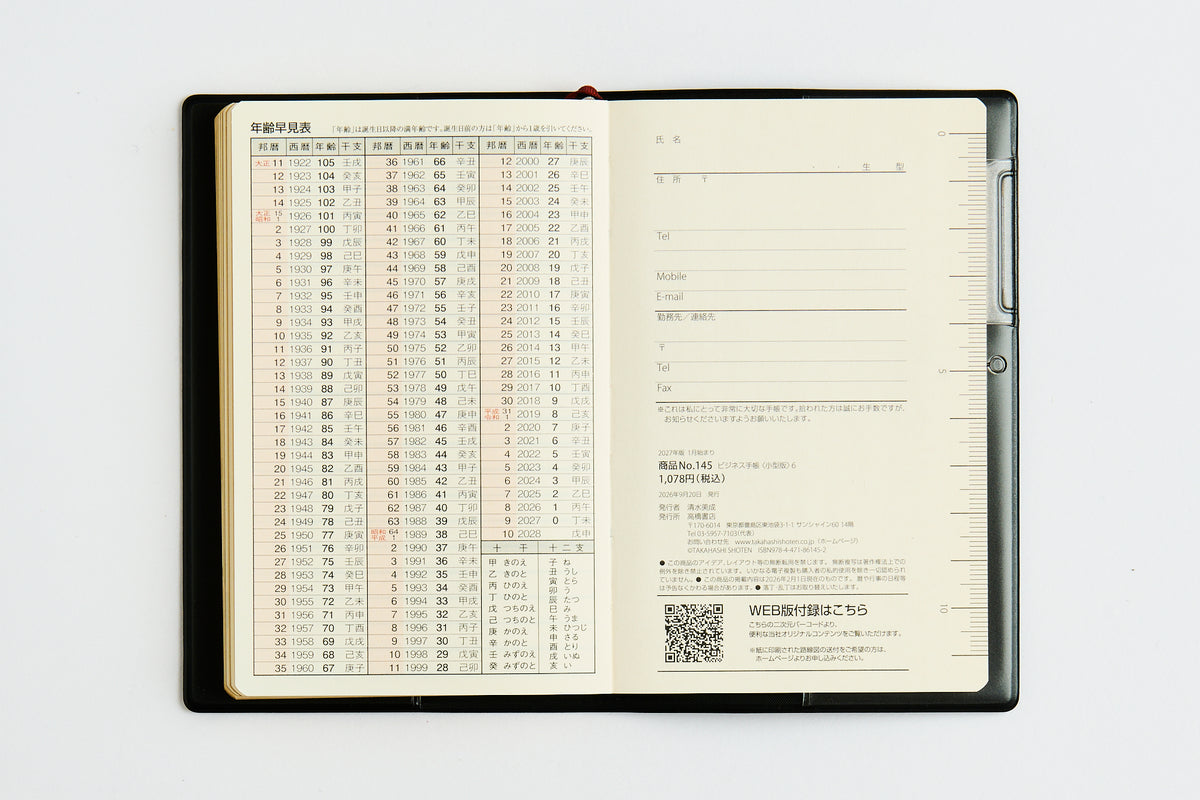 年齢早見表 「年齢」は誕生日以降の満年齢です。誕生日前の方は「年齢」から1歳を引いてください。
邦暦 西暦 年齢 干支
大正 11 1922 105 壬戌
12 1923 104 癸亥
13 1924 103 甲子
14 1925 102 乙丑
大正 15 昭和 1 1926 101 丙寅
2 1927 100 丁卯
3 1928 99 戊辰
4 1929 98 己巳
5 1930 97 庚午
6 1931 96 辛未
7 1932 95 壬申
8 1933 94 癸酉
9 1934 93 甲戌
10 1935 92 乙亥
11 1936 91 丙子
12 1937 90 丁丑
13 1938 89 戊寅
14 1939 88 己卯
15 1940 87 庚辰
16 1941 86 辛巳
17 1942 85 壬午
18 1943 84 癸未
19 1944 83 甲申
20 1945 82 乙酉
21 1946 81 丙戌
22 1947 80 丁亥
23 1948 79 戊子
24 1949 78 己丑
25 1950 77 庚寅
26 1951 76 辛卯
27 1952 75 壬辰
28 1953 74 癸巳
29 1954 73 甲午
30 1955 72 乙未
31 1956 71 丙申
32 1957 70 丁酉
33 1958 69 戊戌
34 1959 68 己亥
35 1960 67 庚子
邦暦 西暦 年齢 干支
36 1961 66 辛丑
37 1962 65 壬寅
38 1963 64 癸卯
39 1964 63 甲辰
40 1965 62 乙巳
41 1966 61 丙午
42 1967 60 丁未
43 1968 59 戊申
44 1969 58 己酉
45 1970 57 庚戌
46 1971 56 辛亥
47 1972 55 壬子
48 1973 54 癸丑
49 1974 53 甲寅
50 1975 52 乙卯
51 1976 51 丙辰
52 1977 50 丁巳
53 1978 49 戊午
54 1979 48 己未
55 1980 47 庚申
56 1981 46 辛酉
57 1982 45 壬戌
58 1983 44 癸亥
59 1984 43 甲子
60 1985 42 乙丑
61 1986 41 丙寅
62 1987 40 丁卯
63 1988 39 戊辰
昭和 64 平成 1 1989 38 己巳
2 1990 37 庚午
3 1991 36 辛未
4 1992 35 壬申
5 1993 34 癸酉
6 1994 33 甲戌
7 1995 32 乙亥
8 1996 31 丙子
9 1997 30 丁丑
10 1998 29 戊寅
11 1999 28 己卯
邦暦 西暦 年齢 干支
12 2000 27 庚辰
13 2001 26 辛巳
14 2002 25 壬午
15 2003 24 癸未
16 2004 23 甲申
17 2005 22 乙酉
18 2006 21 丙戌
19 2007 20 丁亥
20 2008 19 戊子
21 2009 18 己丑
22 2010 17 庚寅
23 2011 16 辛卯
24 2012 15 壬辰
25 2013 14 癸巳
26 2014 13 甲午
27 2015 12 乙未
28 2016 11 丙申
29 2017 10 丁酉
30 2018 9 戊戌
平成 31 令和 1 2019 8 己亥
2 2020 7 庚子
3 2021 6 辛丑
4 2022 5 壬寅
5 2023 4 癸卯
6 2024 3 甲辰
7 2025 2 乙巳
8 2026 1 丙午
9 2027 0 丁未
10 2028 戊申
十干
甲 きのえ
乙 きのと
丙 ひのえ
丁 ひのと
戊 つちのえ
己 つちのと
庚 かのえ
辛 かのと
壬 みずのえ
癸 みずのと
十二支
子 ね
丑 うし
寅 とら
卯 う
辰 たつ
巳 み
午 うま
未 ひつじ
申 さる
酉 とり
戌 いぬ
亥 い
氏 名
・ ・ 生 型
住 所 〒
Tel
Mobile
E-mail
勤務先／連絡先
〒
Tel
Fax
※これは私にとって非常に大切な手帳です。拾われた方は誠にお手数ですが、
お知らせくださいますようお願いいたします。
2027年版 1月始まり
商品No.145 ビジネス手帳〈小型版〉6
1,078円（税込）
2026年9月20日 発行
発行者 清水美成
発行所 高橋書店
〒170-6014 東京都豊島区東池袋3-1-1 サンシャイン60 14階
Tel 03-5957-7103（代表）
お問い合わせ先 www.takahashishoten.co.jp（ホームページ）
©TAKAHASHI SHOTEN ISBN978-4-471-86145-2
● この商品のアイデア、レイアウト等の無断転用を禁じます。 無断複写は著作権法上での
例外を除き禁止されています。 いかなる電子複製も購入者の私的使用を除き一切認められ
ていません。 ● この商品の掲載内容は2026年2月1日現在のものです。 暦や行事の日程等
は予告なくかわる場合があります。 ● 落丁・乱丁はお取り替えいたします。
WEB版付録はこちら
こちらの二次元バーコードより、
便利な当社オリジナルコンテンツをご覧いただけます。
※紙に印刷された路線図の送付をご希望の方は、
ホームページよりお申し込みください。
0
5
10